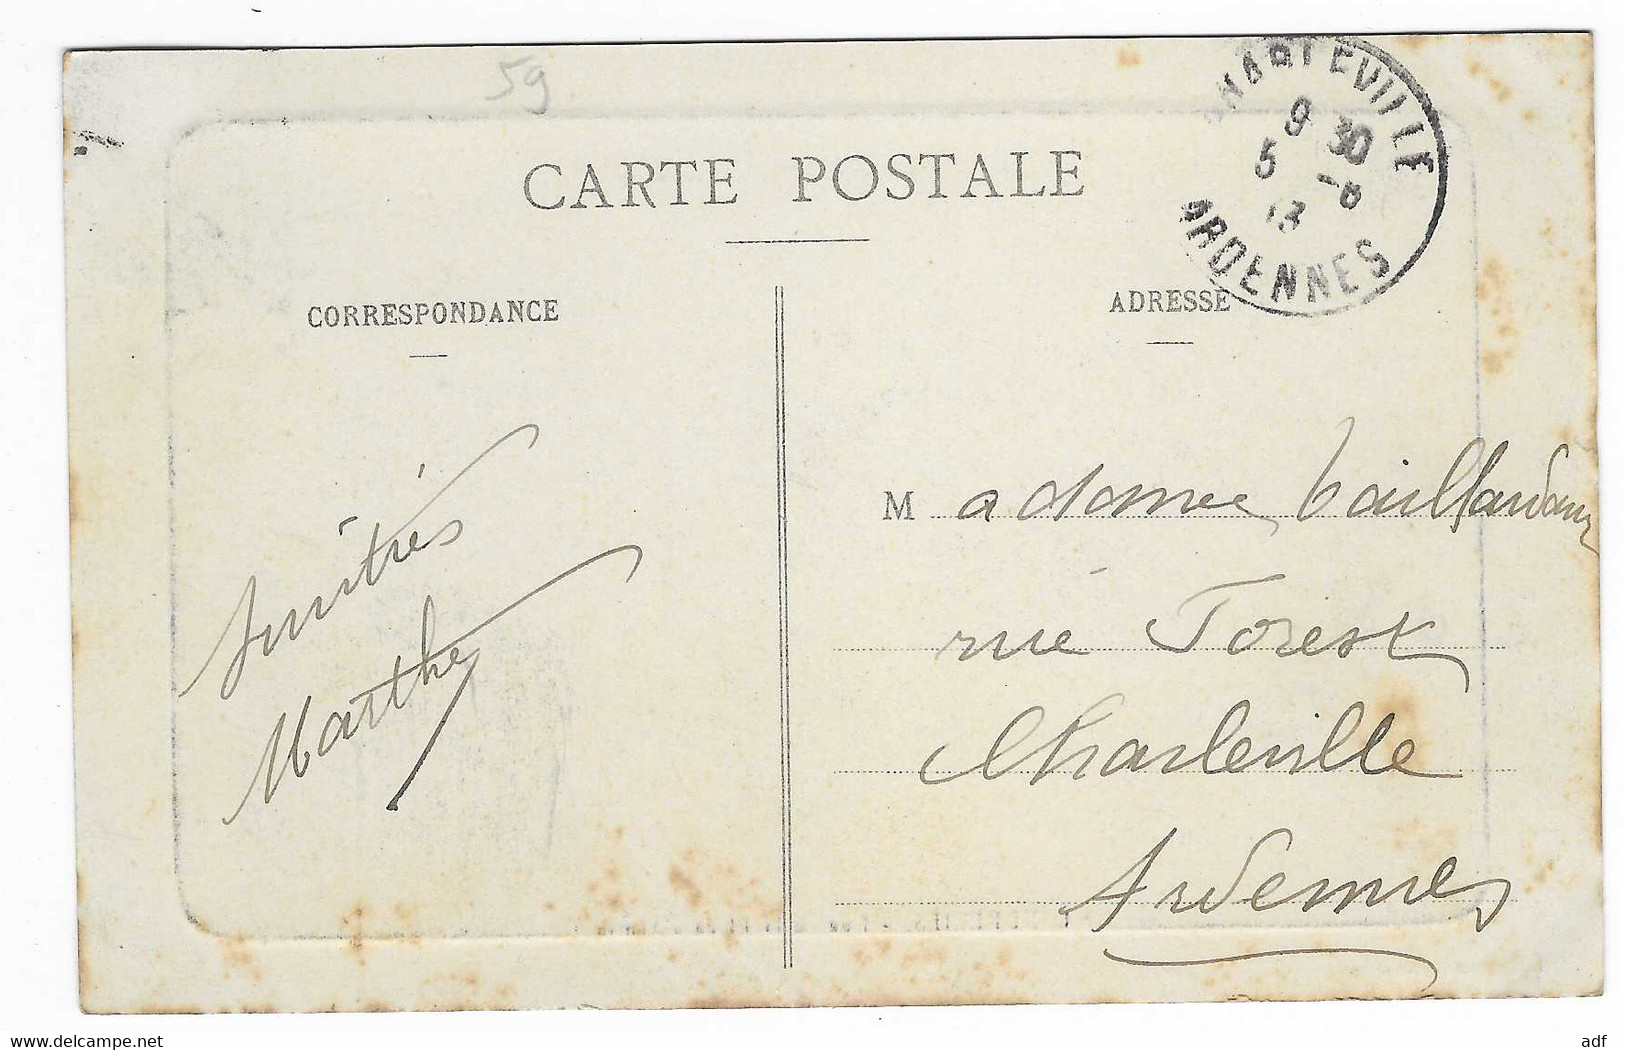 59
CARTE POSTALE
CHARLEVILLE
9 30
5 -8
13
ARDENNES
CORRESPONDANCE
ADRESSE
Amitiés
Marthe
Madame Vaillandaux
rue Forest
Charleville
Ardennes
www.delcampe.net
adf